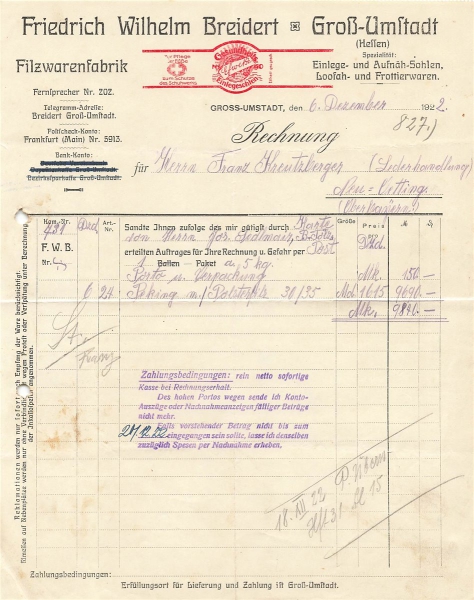 Friedrich Wilhelm Breidert Groß-Umstadt
(Hessen)
Filzwarenfabrik
Spezialität:
Einlege- und Aufnäh-Sohlen,
Loofah- und Frottierwaren.
Fernsprecher Nr. 202.
Telegramm-Adresse:
Breidert Groß-Umstadt.
Postscheck-Konto:
Frankfurt (Main) Nr. 5913.
Bank-Konto:
Bezirkssparkasse Groß-Umstadt.
Zur Pflege
der Füße
zum Schutze
des Schuhwerks
Gesundheits
Einlegesohle
GROSS-UMSTADT, den 6. Dezember 1922.
827.)
Rechnung
für Herrn Franz Kreutzberger (Lederhandlung)
Neu-Oetting.
(Oberbayern)
Kom.-Nr.
Art.-Nr.
Größe
Preis
F. W. B.
Nr.
Sandte Ihnen zufolge des mir gütigst durch Karte
von Herrn
erteilten Auftrages für Ihre Rechnung u. Gefahr per Post
1 Ballen – Paket a, 5 kg.
Dtzd.
Porto u. Verpackung Mk. 150.–
6 24 Peking m/ 30/35 1615 9690.–
Mk. 9840.–
Reklamationen werden nur sofort nach Empfang der Ware berücksichtigt.
Rimessen auf Nebenplätze werden nur ohne Verbindlichkeit wegen Protest oder Verspätung unter Berechnung
der Inkassospesen angenommen.
Zahlungsbedingungen: rein netto sofortige
Kasse bei Rechnungserhalt.
Des hohen Portos wegen sende ich Konto-
Auszüge oder Nachnahmeanzeigen fälliger Beträge
nicht mehr.
Falls vorstehender Betrag nicht bis zum
eingegangen sein sollte, lasse ich denselben
zuzüglich Spesen per Nachnahme erheben.
18. XII 22
Zahlungsbedingungen:
Erfüllungsort für Lieferung und Zahlung ist Groß-Umstadt.